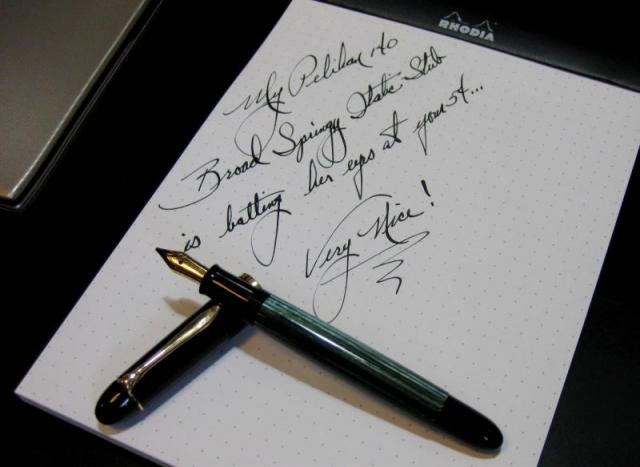 RHODIA
My Pelikan 140
Broad Springy Italic Stub
is batting her eyes at your 54...
Very Nice!